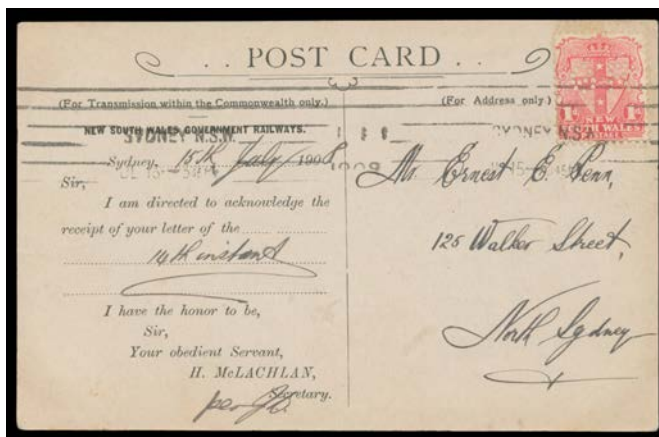 POST CARD
(For Transmission within the Commonwealth only.)
NEW SOUTH WALES GOVERNMENT RAILWAYS.
SYDNEY N.S.W.
Sydney, 15th July 1908
Sir,
I am directed to acknowledge the
receipt of your letter of the
14th instant
I have the honor to be,
Sir,
Your obedient Servant,
H. McLACHLAN,
Secretary.
per
(For Address only)
1908
SYDNEY N.S.W.
1d 1d
NEW
SOUTH WALES
Mr. Ernest E. Penn,
125 Walker Street,
North Sydney